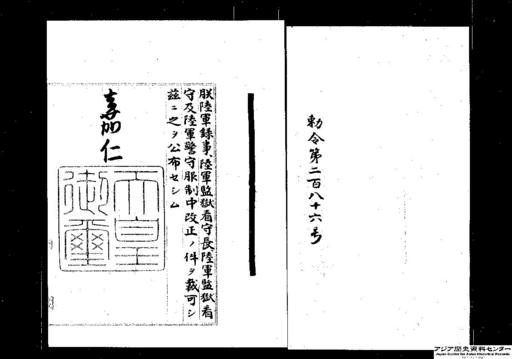 勅令第二百八十六号
朕陸軍録事、陸軍監獄看守長、陸軍監獄看
守及陸軍警守服制中改正ノ件ヲ裁可シ
茲ニ之ヲ公布セシム
嘉仁
天皇
御璽
アジア歴史資料センター
Japan Center for Asian Historical Records